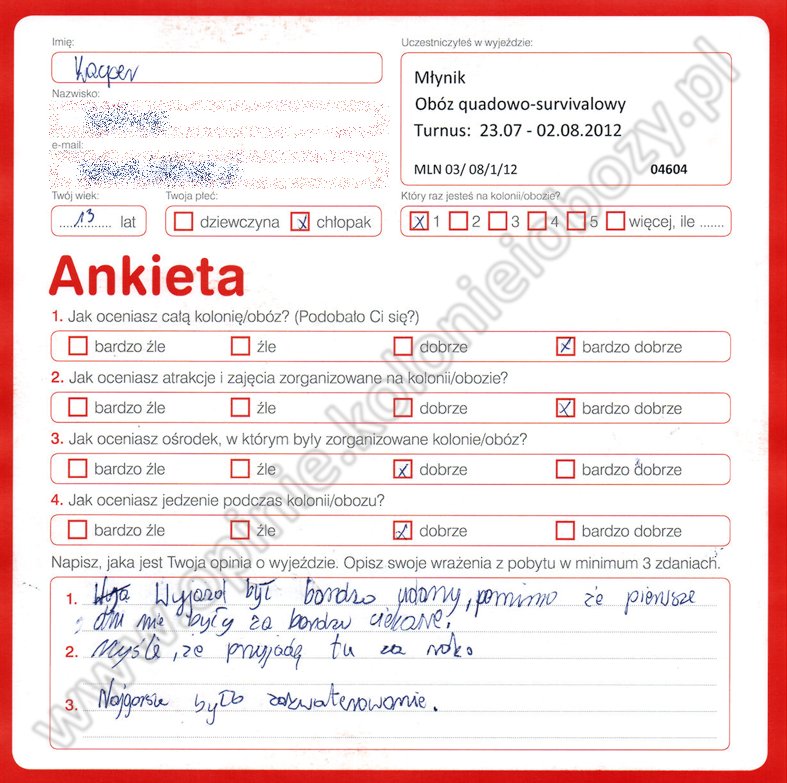 Imię:
Kacper
Nazwisko:
e-mail:
Twój wiek:
13 lat
Twoja płeć:
dziewczyna x chłopak
Uczestniczyłeś w wyjeździe:
Młynik
Obóz quadowo-survivalowy
Turnus: 23.07 - 02.08.2012
MLN 03/ 08/1/12 04604
Który raz jesteś na kolonii/obozie?
x 1 2 3 4 5 więcej, ile .......
Ankieta
1. Jak oceniasz całą kolonię/obóz? (Podobało Ci się?)
bardzo źle źle dobrze x bardzo dobrze
2. Jak oceniasz atrakcje i zajęcia zorganizowane na kolonii/obozie?
bardzo źle źle dobrze x bardzo dobrze
3. Jak oceniasz ośrodek, w którym były zorganizowane kolonie/obóz?
bardzo źle źle x dobrze bardzo dobrze
4. Jak oceniasz jedzenie podczas kolonii/obozu?
bardzo źle źle x dobrze bardzo dobrze
Napisz, jaka jest Twoja opinia o wyjeździe. Opisz swoje wrażenia z pobytu w minimum 3 zdaniach.
1. Wyjazd był bardzo udany, pomimo że pierwsze
dni nie były za bardzo ciekawe.
2. Myślę, że przyjadę tu za roko
3. Najgorsze było zakwaterowanie.
www.opinie.kolonieiobozy.pl